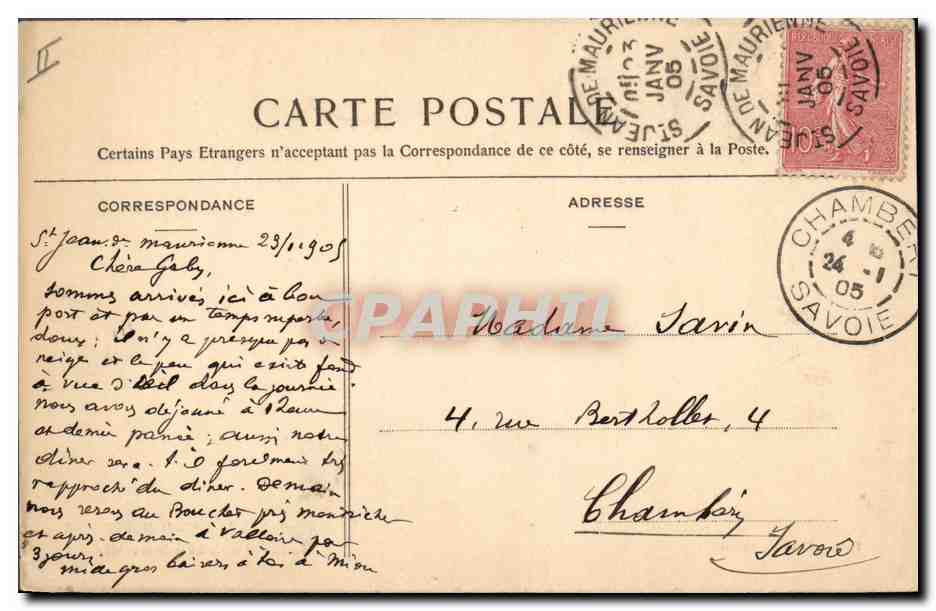 II
CARTE POSTALE
Certains Pays Etrangers n'acceptant pas la Correspondance de ce côté, se renseigner à la Poste.
ST JEAN DE MAURIENNE
23
JANV
05
SAVOIE
ST JEAN DE MAURIENNE
JANV
05
SAVOIE
10
CHAMBERY
4
24 - 1
05
SAVOIE
CORRESPONDANCE
ADRESSE
St Jean de Maurienne 23/1 1905
Chère Gaby,
sommes arrivés ici à bon
port et par un temps superbe
doux; il n'y a presque pas de
neige et le peu qui existe fond
à vue d'œil dans la journée.
nous avons déjeuné à 1 heure
et demie passée; aussi notre
dîner sera-t-il forcément très
rapproché du dîner. Demain
nous serons au Bouchet près
et après-demain à Valloire pour
3 jours.
mi de gros baisers à toi à
CPAPHIL
Madame Savin
4, rue Berthollet, 4
Chambéry
Savoie